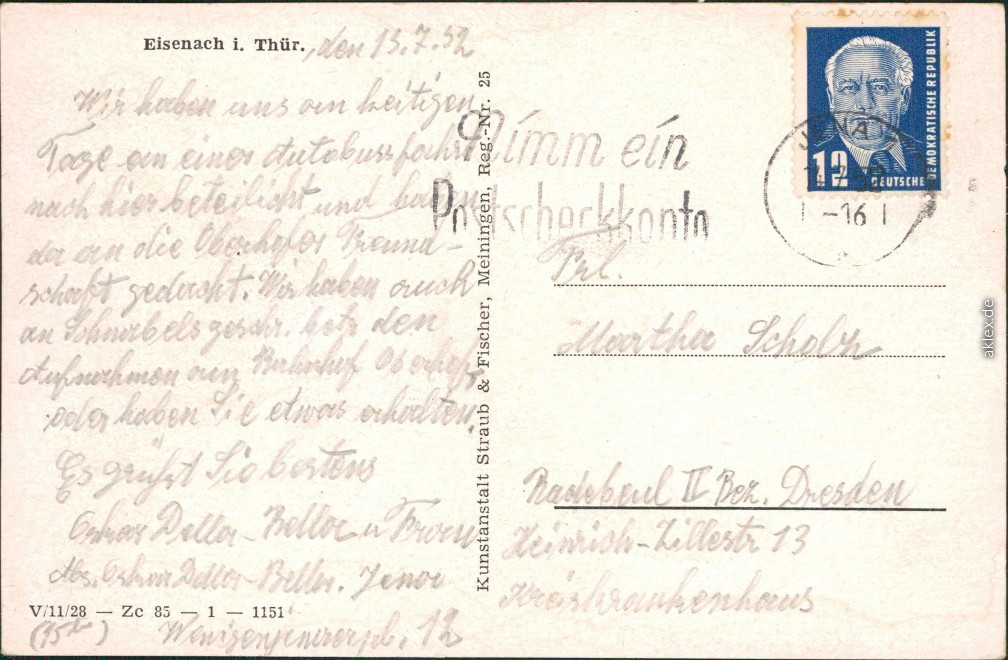 Eisenach i. Thür., den 13.7.52
Wir haben uns am heitigen
Tage an einer Autobussfahrt
nach hier beteilicht und haben
da an die Oberhofer Freund-
schaft gedacht. Wir haben auch
an Schnabels geschr. betr. den
Aufnahmen am Bahnhof Oberhof,
oder haben Sie etwas erhalten.
Es grüßt Sie bestens
Oskar Dellor-Beller u Frau
Abs. Oskar Dellor-Beller. Jena
V/11/28 — Zc 85 — 1 — 1151
12
Kunstanstalt Straub & Fischer, Meiningen, Reg.-Nr. 25
Nimm ein
Postscheckkonto
DEUTSCHE DEMOKRATISCHE REPUBLIK
12
JENA
-16
Frl.
Martha Scholz
Radebeul II Bez. Dresden
Heinrich-Zillestr 13
Kreiskrankenhaus
aklex.de